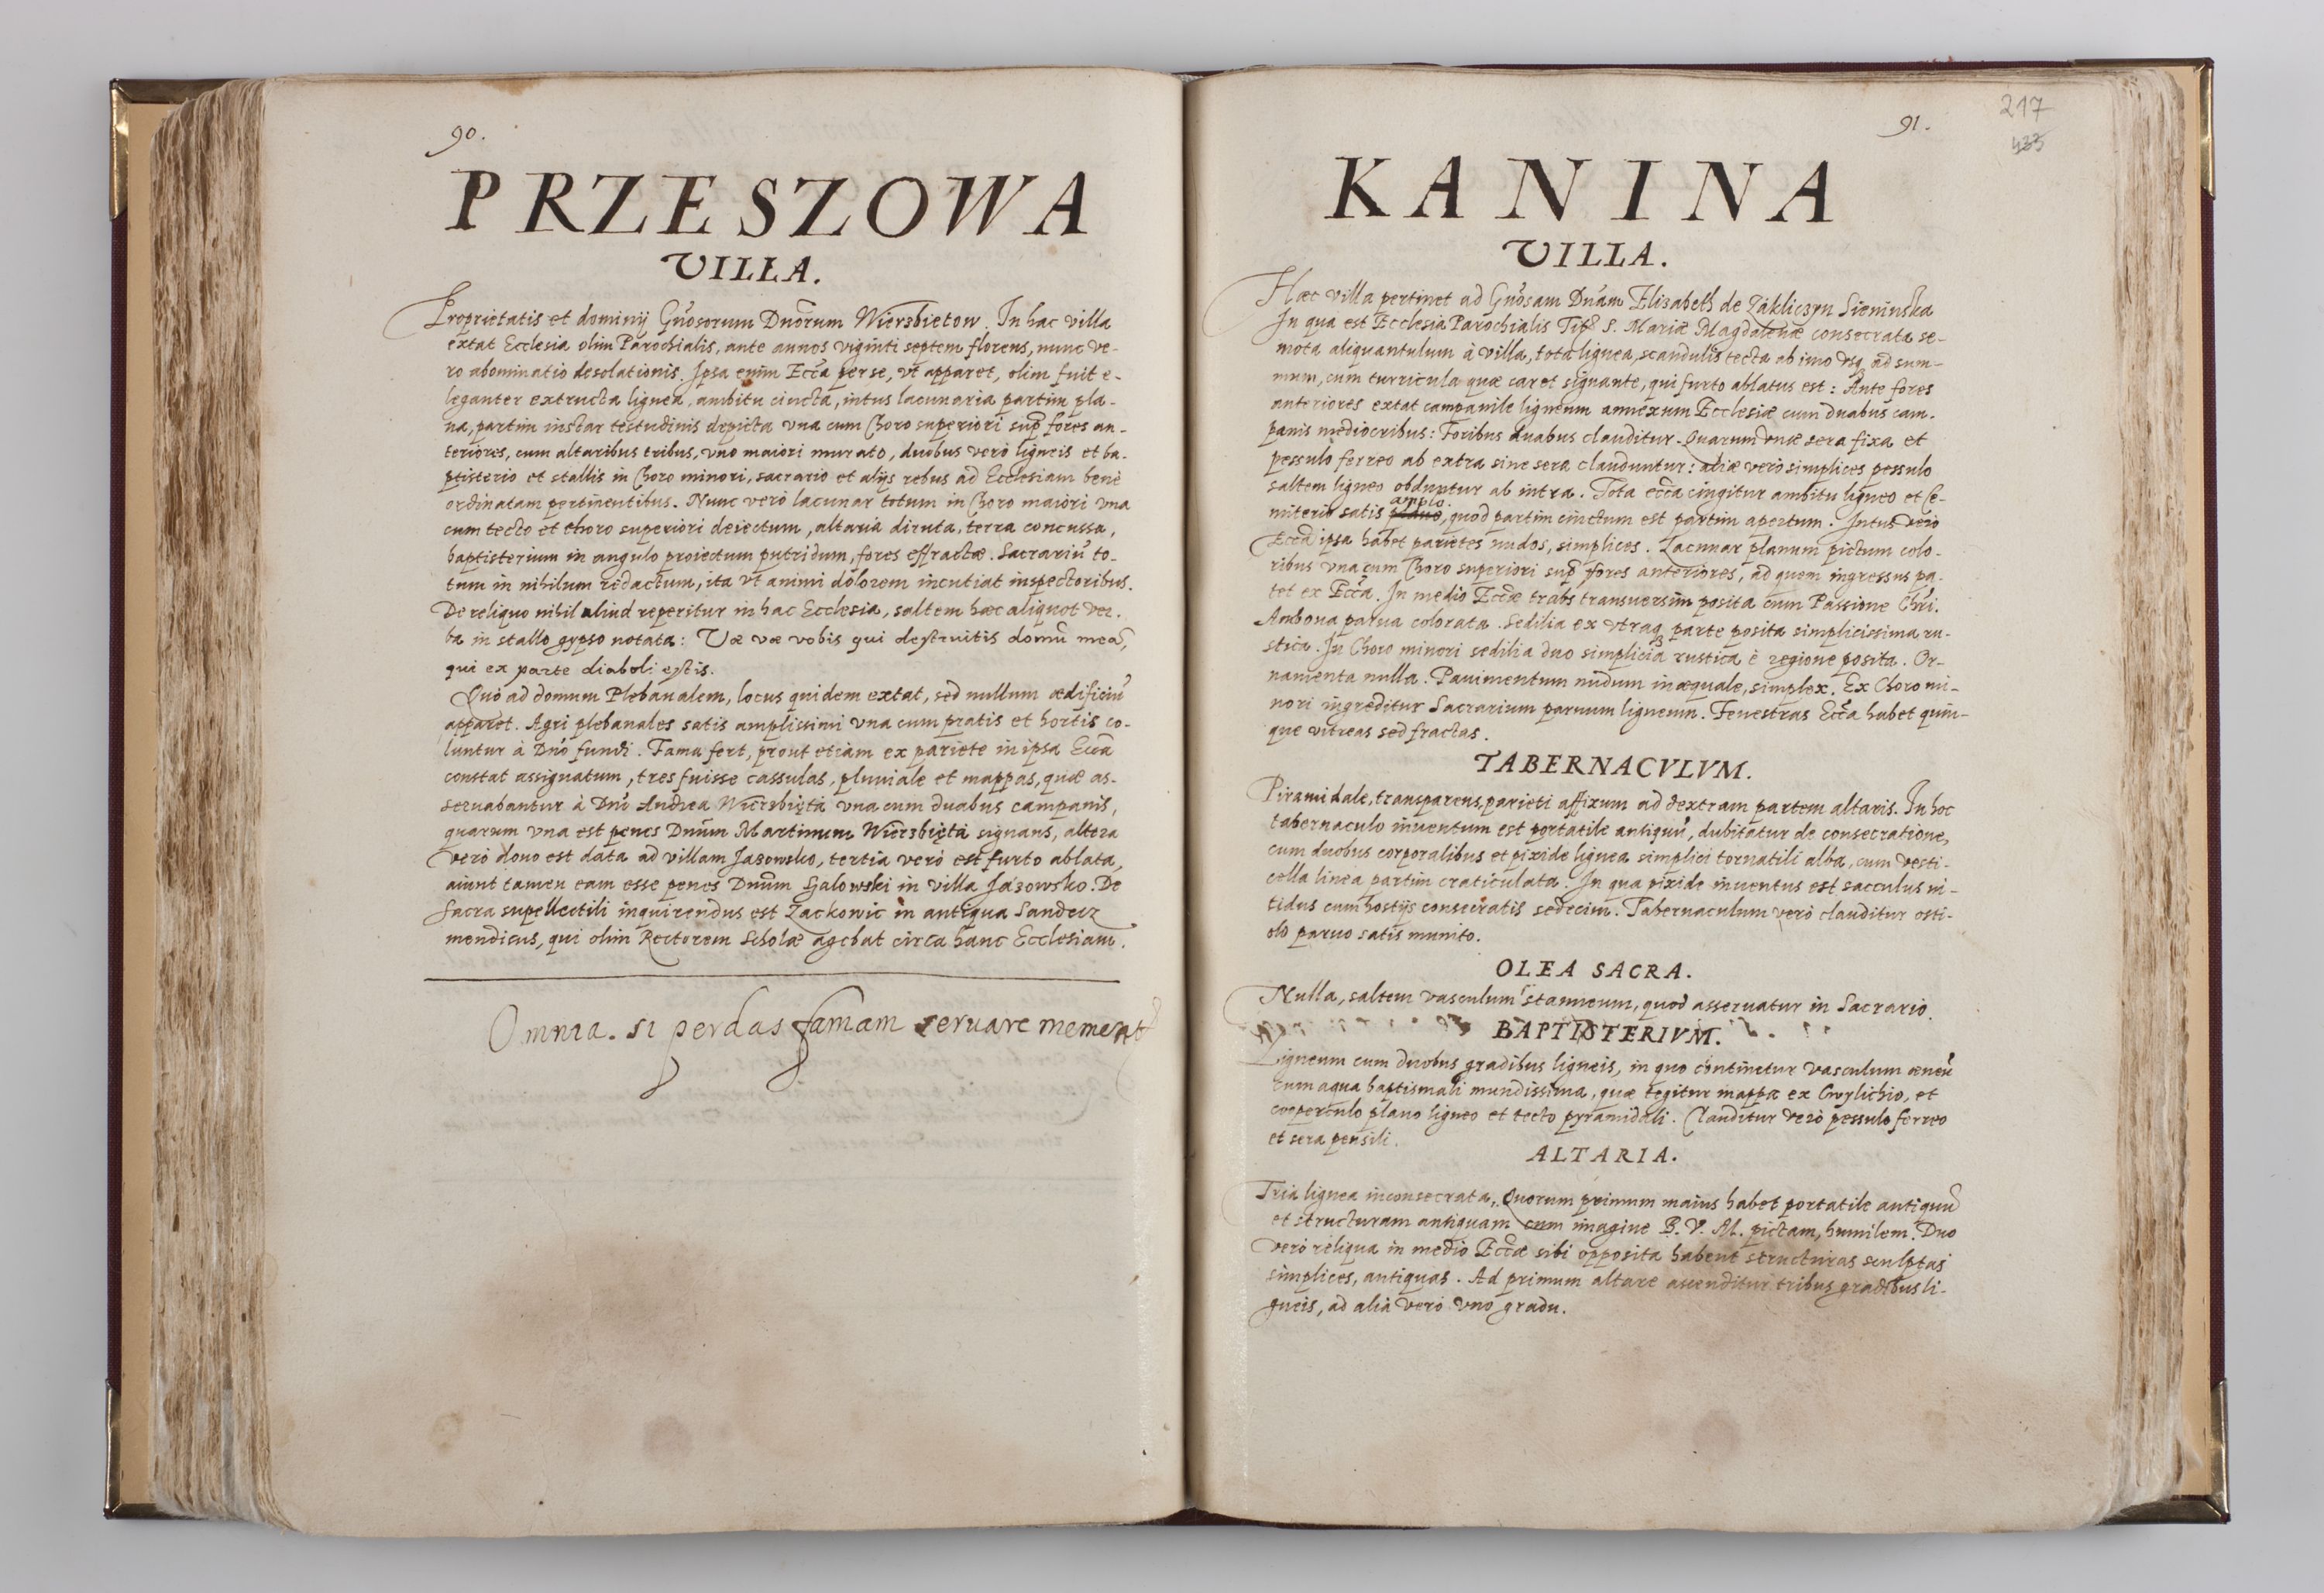 90.
PRZESZOWA
VILLA.
Proprietatis et dominij Gnosorum Dnorum Wierzbietow. In hac villa
extat Ecclesia olim Parochialis, ante annos viginti septem florens, nunc ve-
ro abominatio desolationis. Ipsa enim Ecca per se, vt apparet, olim fuit e-
leganter extructa lignea, ambitu cincta, intus lacunaria partim pla-
na, partim instar testudinis depicta vna cum Choro superiori sup fores an-
teriores, cum altaribus tribus, vno maiori murato, duobus verò ligneis et ba-
ptisterio et stallis in Choro minori, sacrario et alijs rebus ad Ecclesiam benè
ordinatam pertinentibus. Nunc verò lacunar totum in Choro maiori vna
cum tecto et choro superiori deiectum, altaria diruta, terra concussa,
baptisterium in angulo proiectum putridum, fores effractæ. Sacrariũ to-
tum in nihilum redactum, ita vt animi dolorem incutiat inspectoribus.
De reliquo nihil aliud reperitur in hac Ecclesia, saltem hæc aliquot ver-
ba in stallo gypso notata: Væ væ vobis qui destruitis domũ meã,
qui ex parte diaboli estis.
Quò ad domum Plebanalem, locus quidem extat, sed nullum ædificiũ
apparet. Agri plebanales satis amplissimi vna cum pratis et hortis co-
luntur à Dnõ fundi. Fama fert, prout etiam ex pariete in ipsa Ecca
constat assignatum, tres fuisse cassulas, pluuiale et mappas, quæ as-
seruabantur à Dnõ Andrea Wierzbięta vna cum duabus campanis,
quarum vna est penes Dnũm Martinum Wierzbięta signans, altera
verò dono est data ad villam Jazowsko, tertia verò est furto ablata,
aiunt tamen eam esse penes Dnũm Galowski in villa Jazowsko. De
sacra supellectili inquirendus est Zackowic in antiqua Sandecz
mendicus, qui olim Rectorem Scholæ agebat circa hanc Ecclesiam.
Omnia. si perdas famam seruare memento
91.
217
433
KANINA
VILLA.
Hæc villa pertinet ad Gnõsam Dnãm Elizabeth de Zakliczyn Sieninska
In qua est Ecclesia Parochialis Tit S. Mariæ Magdalenæ consecrata se-
mota aliquantulum à villa, tota lignea, scandulis tecta ab imo vsq ad sum-
mum, cum turricula quæ caret signante, qui furto ablatus est: Ante fores
anteriores extat campanile ligneum annexum Ecclesiæ cum duabus cam-
panis mediocribus: Foribus duabus clauditur. Quarum vnæ sera fixa et
pessulo ferreo ab extra sine sera clauduntur: aliæ verò simplices pessulo
saltem ligneo obduntur ab intra. Tota ecca cingitur ambitu ligneo et Cæ-
amplo.
miterio satis plano, quod partim cinctum est partim apertum. Intus verò
Ecca ipsa habet parietes nudos, simplices. Lacunar planum pictum colo-
ribus vna cum Choro superiori sup fores anteriores, ad quem ingressus pa-
tet ex Ecca. In medio Eccæ trabs transuersim posita cum Passione Chri.
Ambona parua colorata. Sedilia ex vtraq parte posita simplicissima ru-
stica. In Choro minori sedilia duo simplicia rustica è regione posita. Or-
namenta nulla. Pauimentum nudum inæquale, simplex. Ex Choro mi-
nori ingreditur Sacrarium paruum ligneum. Fenestras Ecca habet quin-
que vitreas sed fractas.
TABERNACVLVM.
Piramidale, transparens, parieti affixum ad dextram partem altaris. In hoc
tabernaculo inuentum est portatile antiquũ, dubitatur de consecratione,
cum duobus corporalibus et pixide lignea simplici tornatili alba, cum vesti-
cella linea partim craticulata. In qua pixide inuentus est sacculus ni-
tidus cum hostijs consecratis sedecim. Tabernaculum verò clauditur osti-
olo paruo satis munito.
OLEA SACRA.
Nulla, saltem vasculum stanneum, quod asseruatur in Sacrario.
BAPTISTERIVM.
Ligneum cum duobus gradibus ligneis, in quo continetur vasculum æneũ
cum aqua baptismali mundissima, quæ tegitur mappa ex Cwylichio, et
coopertulo plano ligneo et tecto pyramidali. Clauditur verò pessulo ferreo
et sera pensili.
ALTARIA.
Tria lignea inconsecrata, Quorum primum maius habet portatile antiquũ
et structuram antiquam cum imagine B. V. M. pictam, humilem. Duo
verò reliqua in medio Eccæ sibi opposita habent structuras sculptas
simplices, antiquas. Ad primum altare ascenditur tribus gradibus li-
gneis, ad alia verò vno gradu.